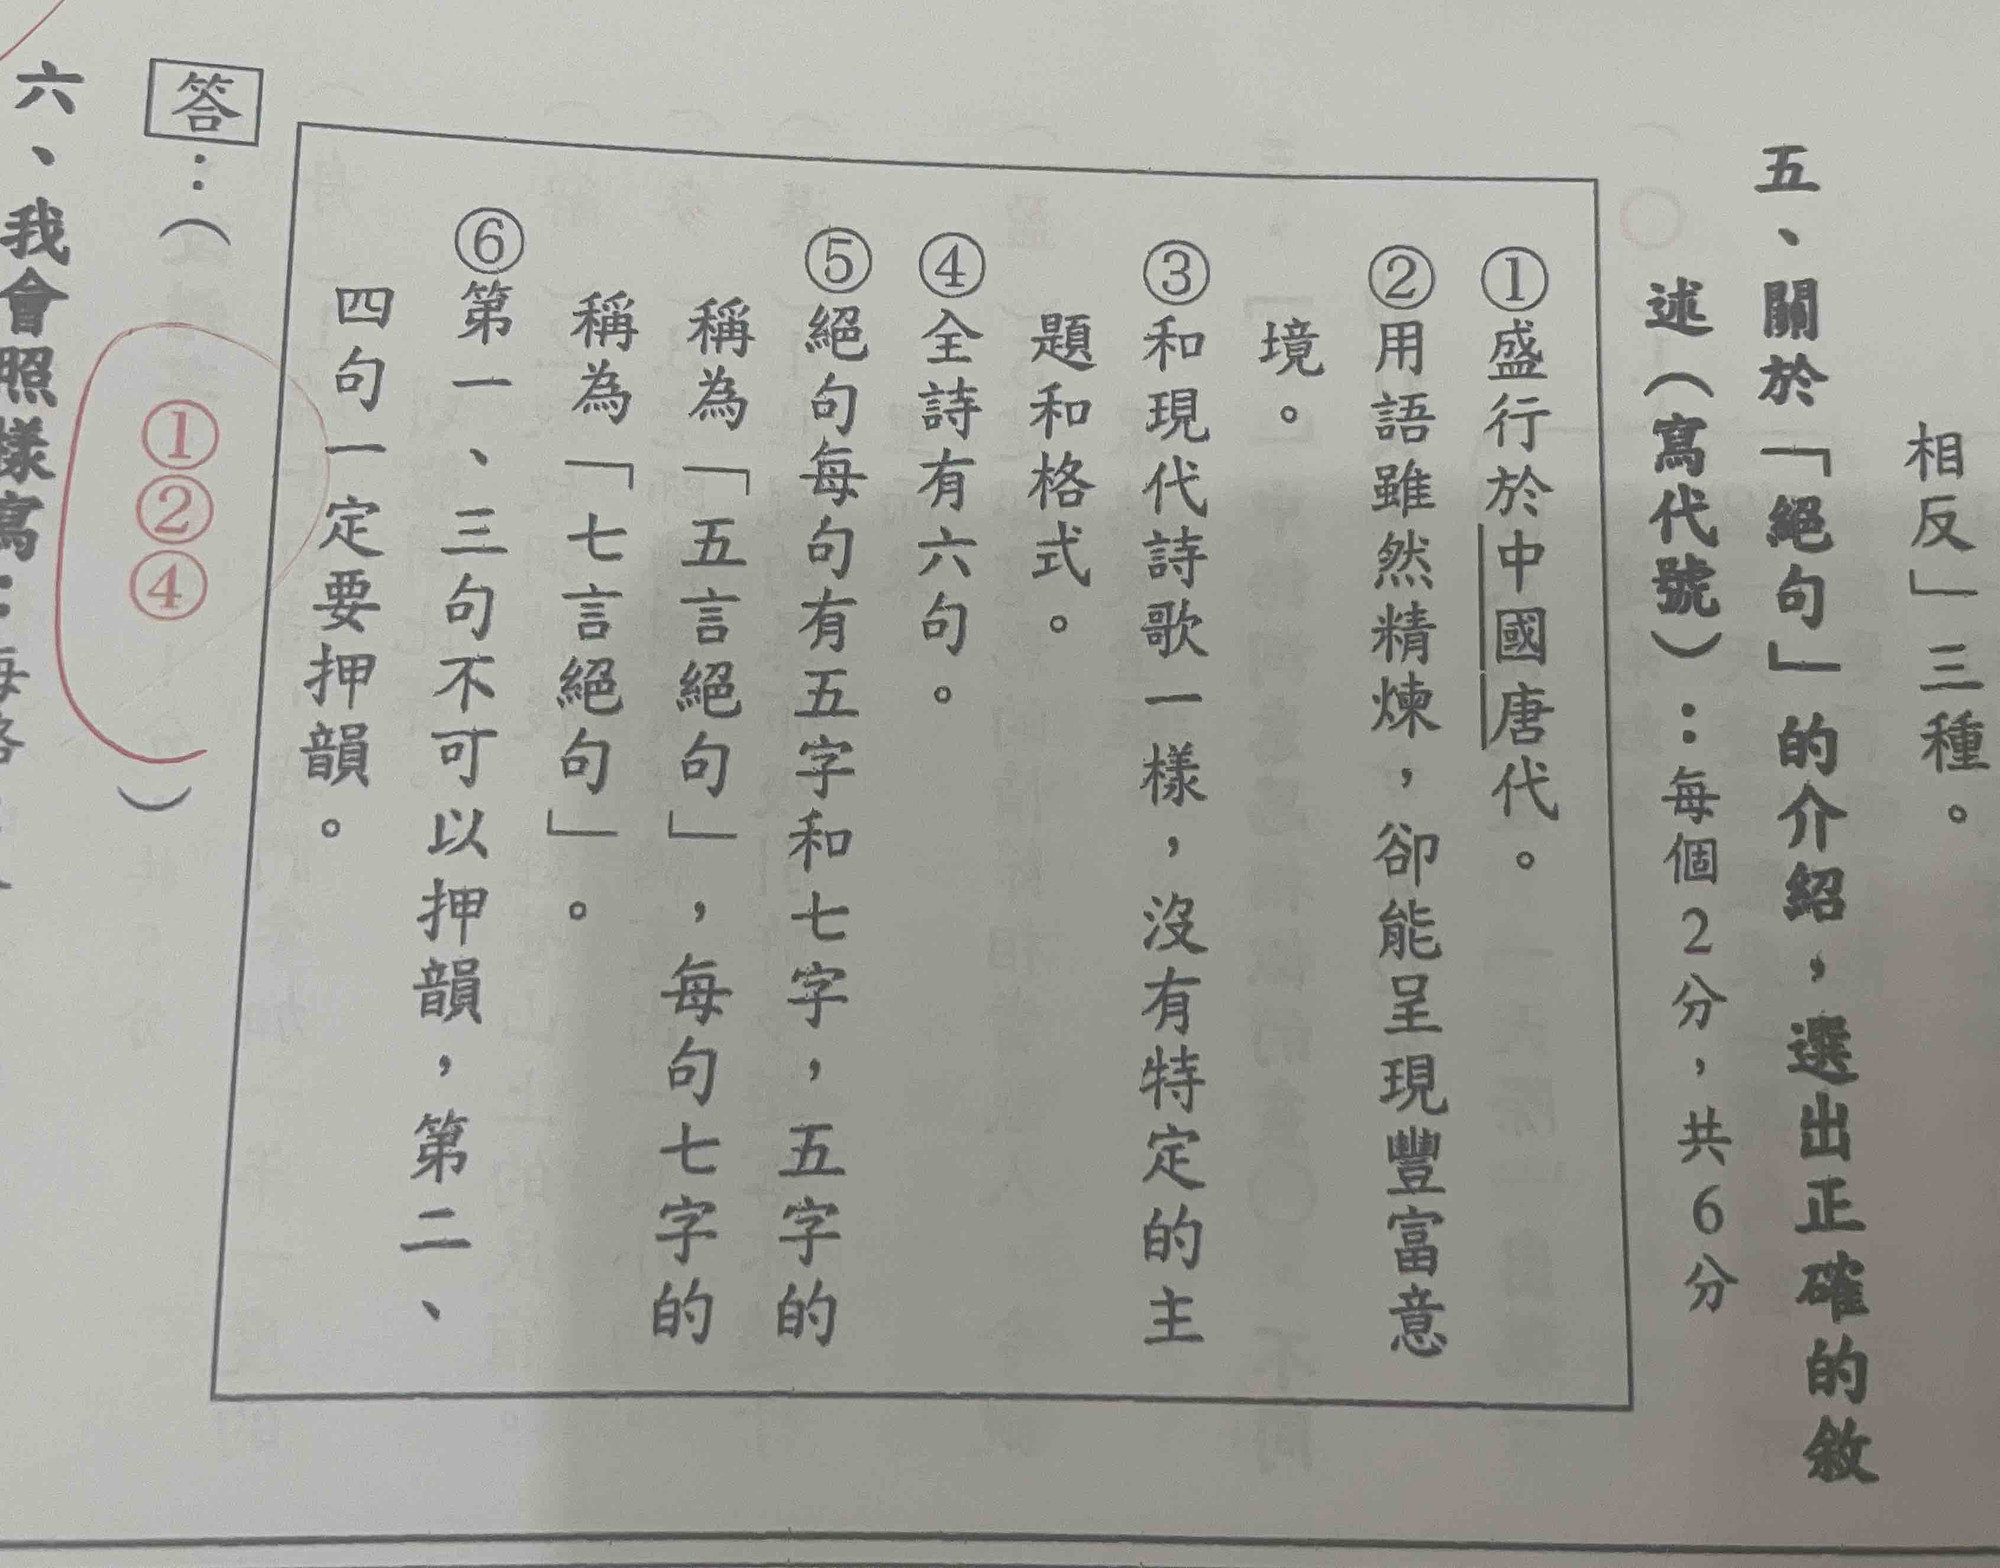 相反」三種。
五、關於「絕句」的介紹，選出正確的敘
述（寫代號）：每個2分，共6分
①盛行於中國唐代。
②用語雖然精煉，卻能呈現豐富意
境。
③和現代詩歌一樣，沒有特定的主
題和格式。
④全詩有六句。
⑤絕句每句有五字和七字，五字的
稱為「五言絕句」，每句七字的
稱為「七言絕句」。
⑥第一、三句不可以押韻，第二、
四句一定要押韻。
答：（①②④）
六、我會照樣寫：每格